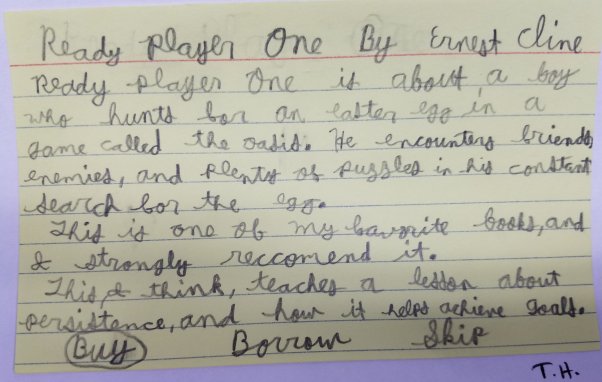 Ready Player One By Ernest Cline
Ready player One is about a boy
who hunts for an easter egg in a
game called the oasis. He encounters friends,
enemies, and plenty of puzzles in his constant
search for the egg.
This is one of my favorite books, and
I strongly reccomend it.
This, I think, teaches a lesson about
persistence, and how it helps achieve goals.
Buy Borrow Skip
T.H.